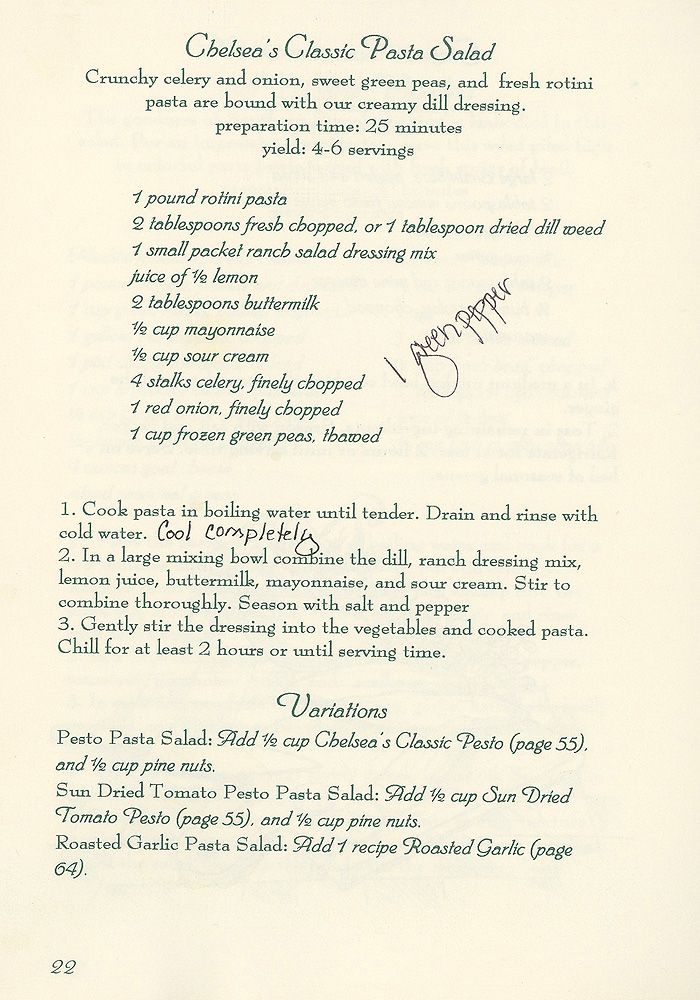 Chelsea's Classic Pasta Salad
Crunchy celery and onion, sweet green peas, and fresh rotini
pasta are bound with our creamy dill dressing.
preparation time: 25 minutes
yield: 4-6 servings
1 pound rotini pasta
2 tablespoons fresh chopped, or 1 tablespoon dried dill weed
1 small packet ranch salad dressing mix
juice of ½ lemon
2 tablespoons buttermilk
½ cup mayonnaise
½ cup sour cream
4 stalks celery, finely chopped
1 red onion, finely chopped
1 cup frozen green peas, thawed
1 green pepper
1. Cook pasta in boiling water until tender. Drain and rinse with
cold water. Cool completely
2. In a large mixing bowl combine the dill, ranch dressing mix,
lemon juice, buttermilk, mayonnaise, and sour cream. Stir to
combine thoroughly. Season with salt and pepper
3. Gently stir the dressing into the vegetables and cooked pasta.
Chill for at least 2 hours or until serving time.
Variations
Pesto Pasta Salad: Add ½ cup Chelsea's Classic Pesto (page 55),
and ½ cup pine nuts.
Sun Dried Tomato Pesto Pasta Salad: Add ½ cup Sun Dried
Tomato Pesto (page 55), and ½ cup pine nuts.
Roasted Garlic Pasta Salad: Add 1 recipe Roasted Garlic (page
64).
22